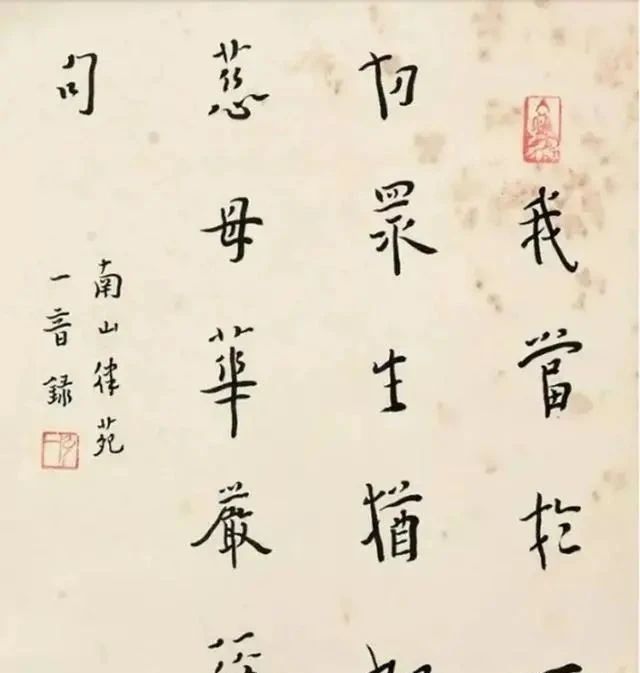 我當於
切眾生猶
慈母華嚴
句
南山律苑
一音錄